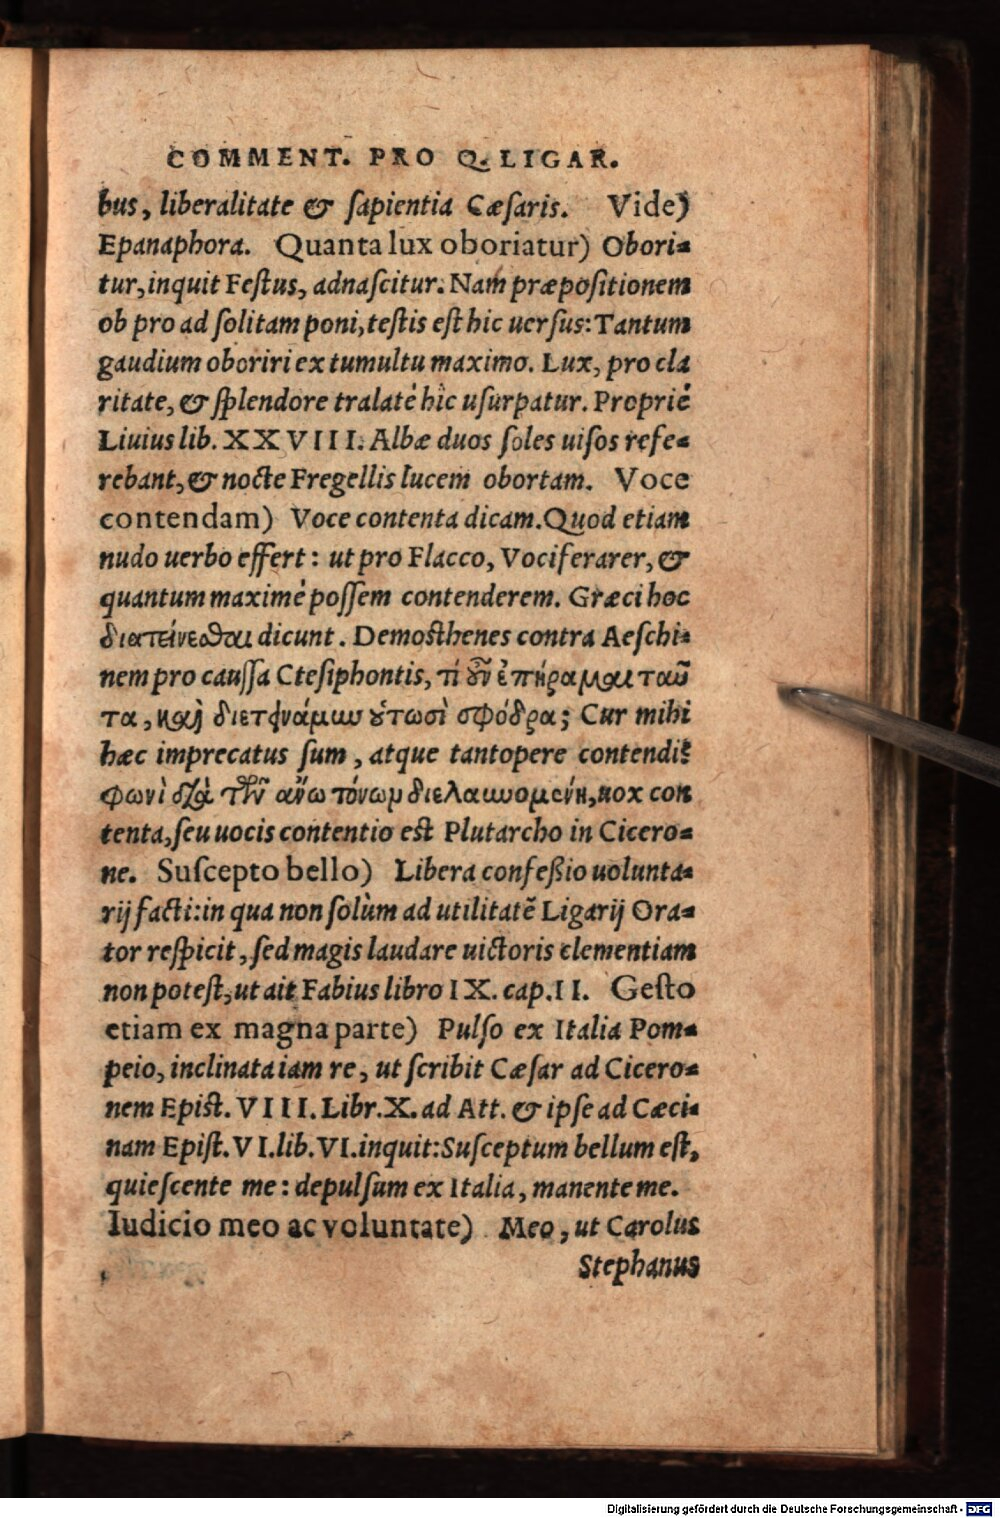 COMMENT. PRO Q. LIGAR.
bus, liberalitate & ſapientia Cæſaris. Vide)
Epanaphora. Quanta lux oboriatur) Obori-
tur, inquit Feſtus, adnaſcitur. Nam præpoſitionem
ob pro ad ſolitam poni, teſtis eſt hic uerſus: Tantum
gaudium oboriri ex tumultu maximo. Lux, pro cla
ritate, & ſplendore tralatè hîc uſurpatur. Propriè
Liuius lib. XXVIII. Albæ duos ſoles uiſos refe-
rebant, & nocte Fregellis lucem obortam. Voce
contendam) Voce contenta dicam. Quod etiam
nudo uerbo effert: ut pro Flacco, Vociferarer, &
quantum maximè poſſem contenderem. Græci hoc
διατείνεσθαι dicunt. Demoſthenes contra Aeſchi-
nem pro cauſſa Cteſiphontis, τί οὖν ἐπήραμαι ταῦ
τα, καὶ διετεινάμην οὑτωσὶ σφόδρα; Cur mihi
hæc imprecatus ſum, atque tantopere contendi?
φωνὶ διὰ τὴν ἄνω τόνων διελαυνομένη, uox con
tenta, ſeu uocis contentio eſt Plutarcho in Cicero-
ne. Suſcepto bello) Libera confeßio uolunta-
rij facti: in qua non ſolùm ad utilitatē Ligarij Ora-
tor reſpicit, ſed magis laudare uictoris clementiam
non poteſt, ut ait Fabius libro IX. cap. II. Geſto
etiam ex magna parte) Pulſo ex Italia Pom-
peio, inclinata iam re, ut ſcribit Cæſar ad Cicero-
nem Epiſt. VIII. Libr. X. ad Att. & ipſe ad Cæci-
nam Epiſt. VI. lib. VI. inquit: Suſceptum bellum eſt,
quieſcente me: depulſum ex Italia, manente me.
Iudicio meo ac voluntate) Meo, ut Carolus
Stephanus
Digitalisierung gefördert durch die Deutsche Forschungsgemeinschaft - DFG